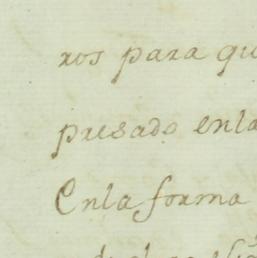 ros para qu
presado enla
Enla forma